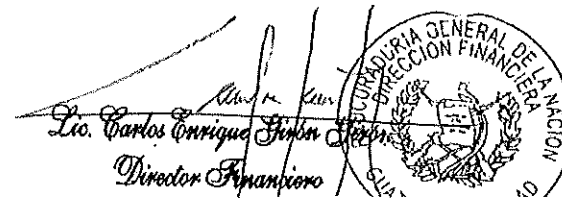 Lic. Carlos Enrique Girón Girón
Director Financiero
PROCURADURIA GENERAL DE LA NACION
DIRECCION FINANCIERA